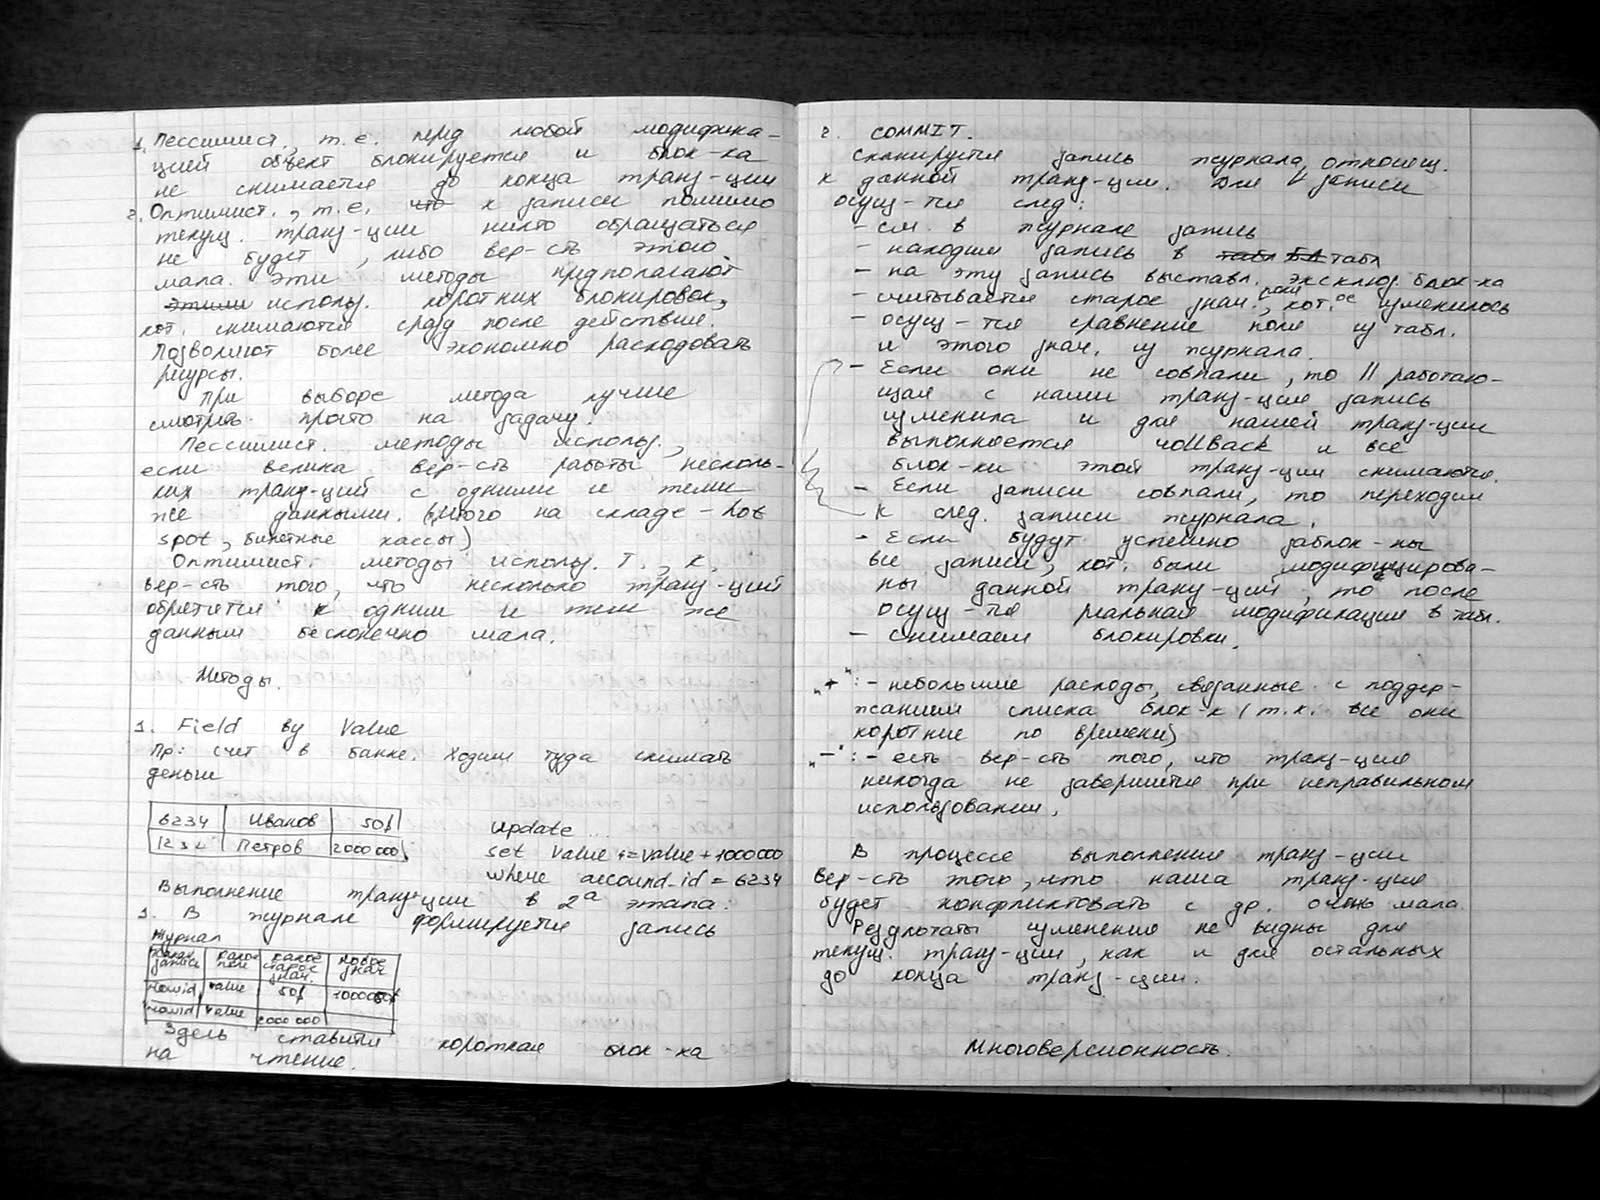 1. Пессимист., т.е. перед любой модифика-
цией объект блокируется и блок-ка
не снимается до конца транз-ции
2. Оптимист., т.е. что к записи помимо
текущ. транз-ции никто обращаться
не будет, либо вер-сть этого
мала. Эти методы предполагают
этими использ. коротких блокировок,
кот. снимаются сразу после действия.
Позволяют более экономно расходовать
ресурсы.
При выборе метода лучше
смотреть просто на задачу.
Пессимист. методы использ.,
если велика вер-сть работы несколь-
ких транз-ций с одними и теми
же данными. (Много на складе - hot
spot, билетные кассы)
Оптимист. методы использ. т., к.
вер-сть того, что несколько транз-ций
обратятся к одним и тем же
данным бесконечно мала.
Методы.
1. Field by Value
Пр: счет в банке. Ходим туда снимать
деньги
6234 Иванов 50$
1234 Петров 2000000$
Update ...
set Value +=value + 1000000
where accound_id = 6234
Выполнение транз-ции в 2а этапа:
1. В журнале формируется запись
Журнал
какая запись какое поле какое старое знач. новое знач
rowid value 50$ 1000050$
rowid value 2000000
Здесь ставится короткая блок-ка
на чтение.
2. COMMIT.
Сканируется запись журнала, относящ.
к данной транз-ции. Для ∀ записи
осущ-тся след:
- см. в журнале запись
- находим запись в табл БД табл
- на эту запись выставл. эксклюз. блок-ка
- считывается старое знач. поля, кот.ое изменилось
- осущ-тся сравнение поля из табл.
и этого знач. из журнала.
- Если они не совпали, то || работаю-
щая с нами транз-ция запись
изменила и для нашей транз-ции
выполняется rollback и все
блок-ки этой транз-ции снимаются.
- Если записи совпали, то переходим
к след. записи журнала.
- Если будут успешно заблок-ны
все записи, кот. были модифицирова-
ны данной транз-цией, то после
осущ-тся реальная модификация в табл.
- снимаем блокировки.
"+": - небольшие расходы, связанные с поддер-
жанием списка блок-к (т.к. все они
короткие по времени)
"-": - есть вер-сть того, что транз-ция
никогда не завершится при неправильном
использовании.
В процессе выполнения транз-ции
вер-сть того, что наша транз-ция
будет конфликтовать с др. очень мала.
Результаты изменения не видны для
текущ. транз-ции, как и для остальных
до конца транз-ции.
Многоверсионность.